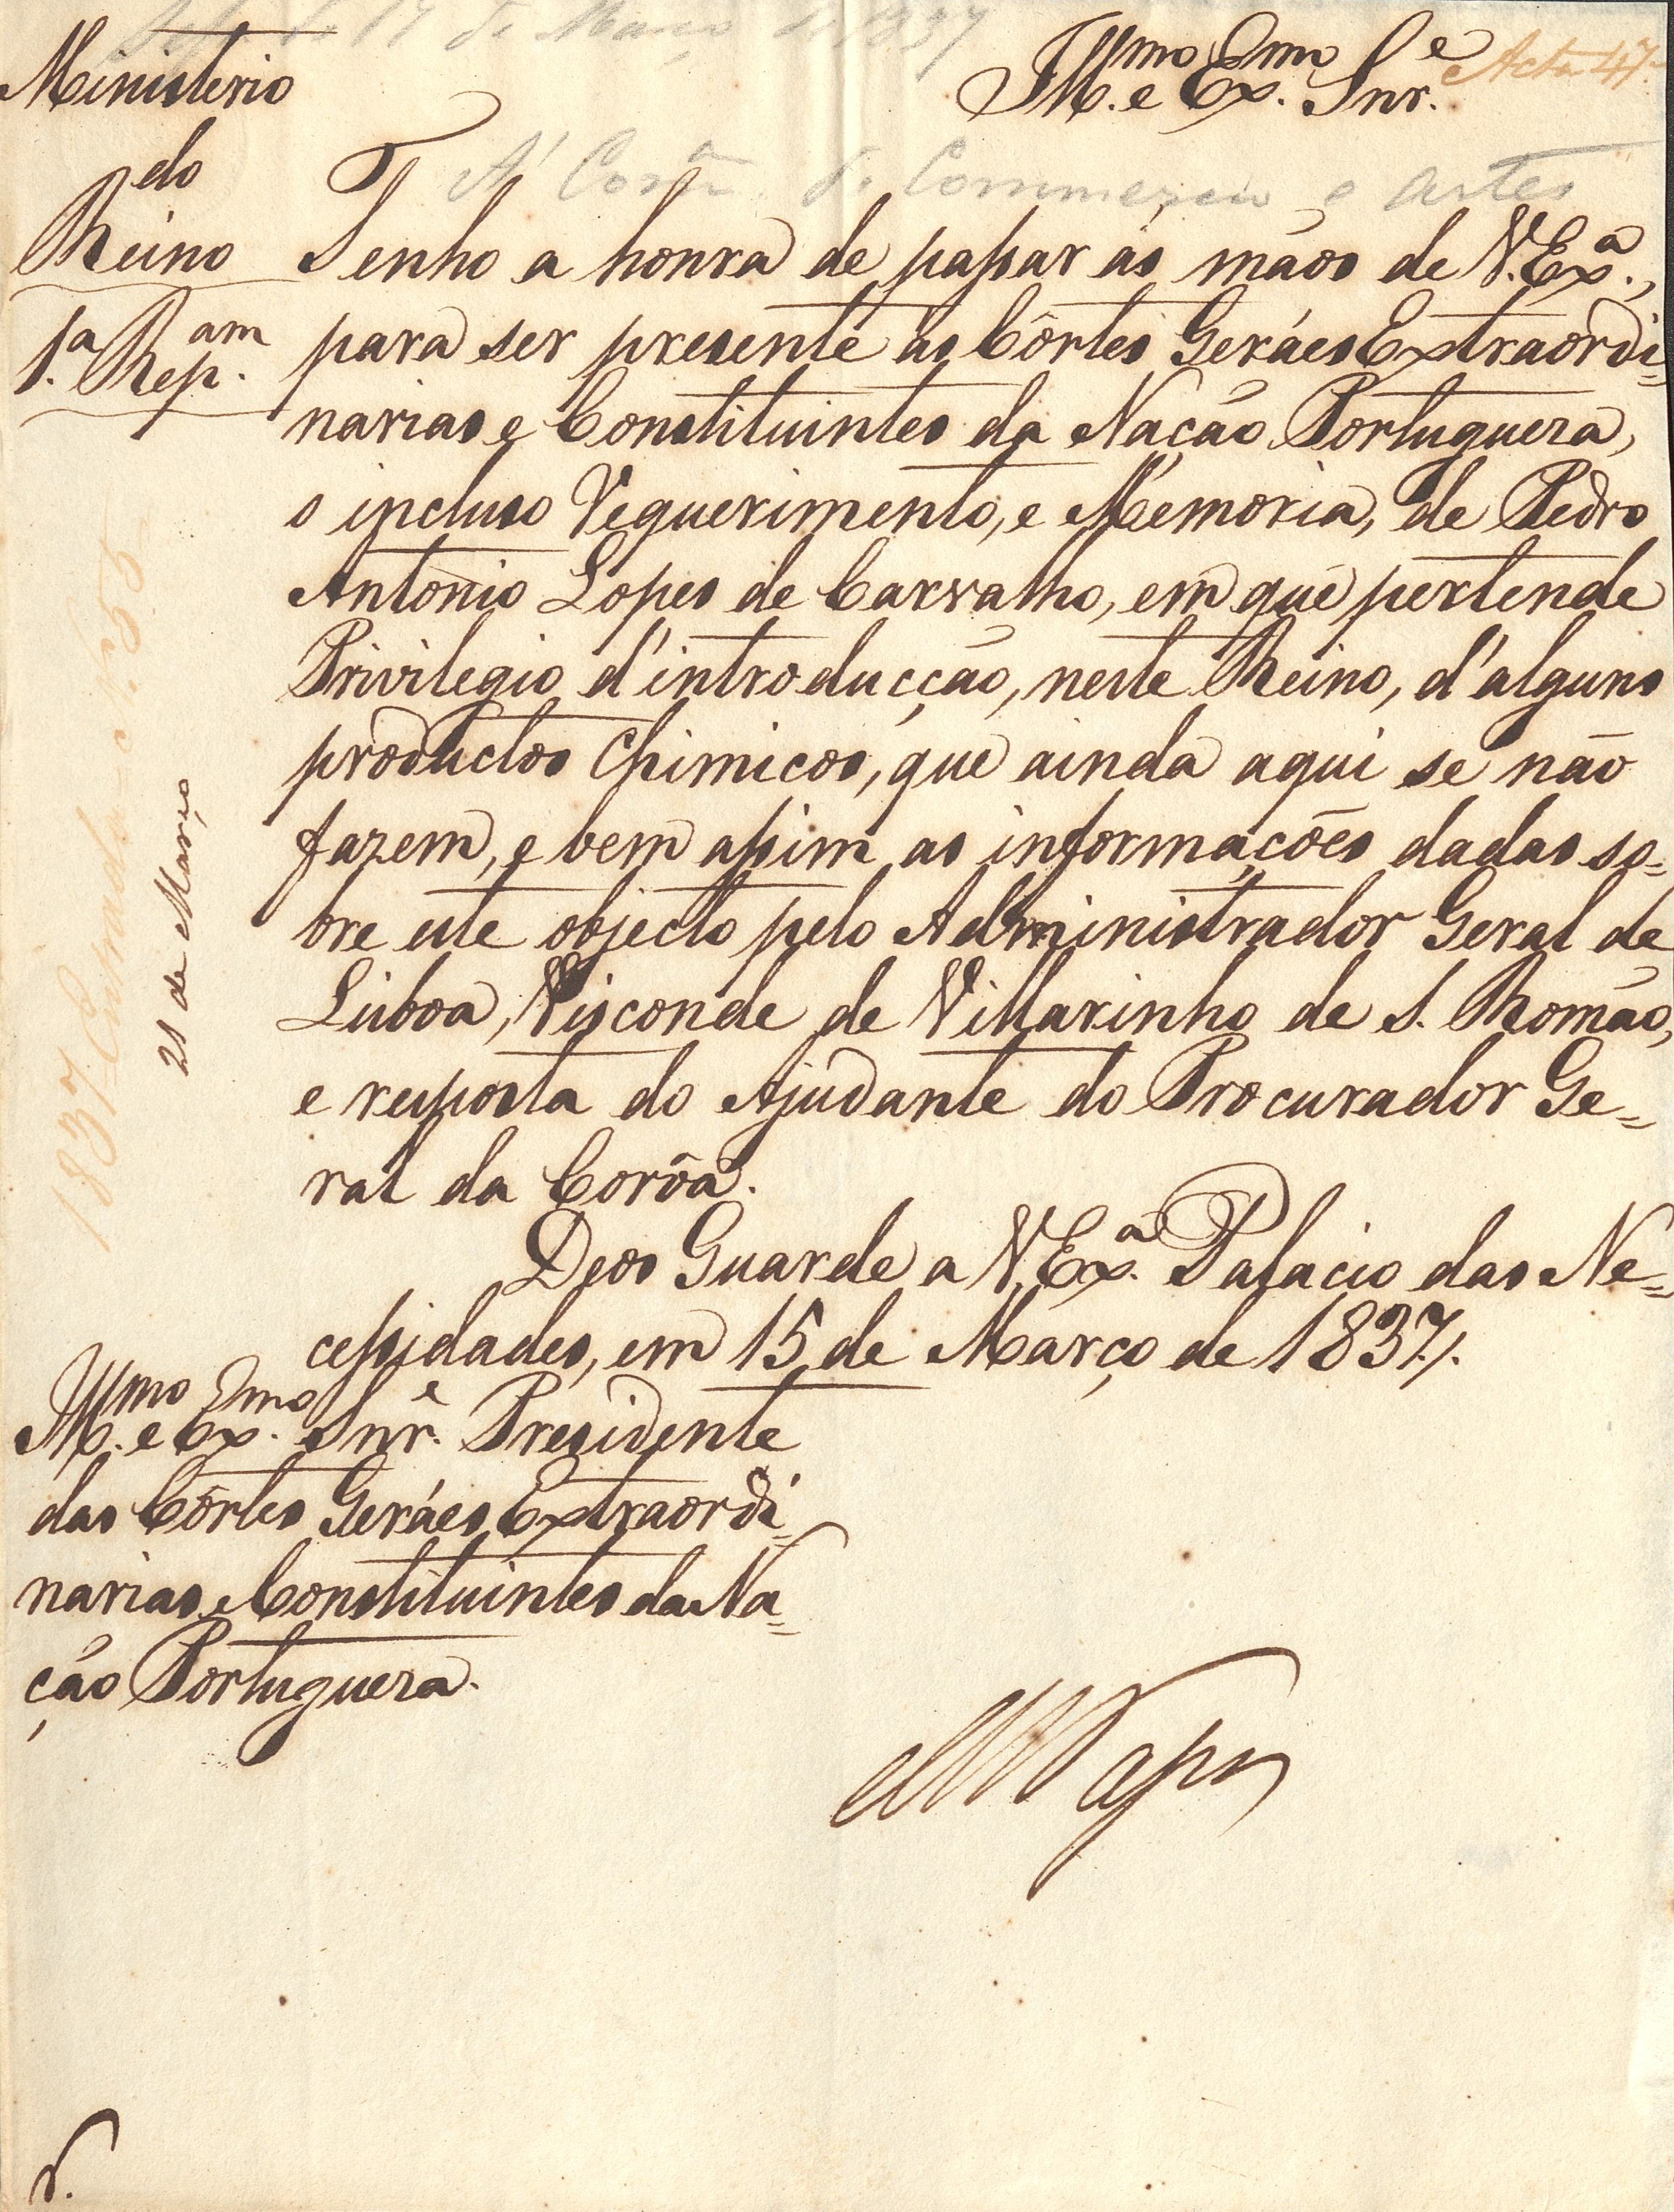 17 de Março de 1837
Ministerio
do
Reino
1.ª Rep.am
Ill.mo e Ex.mo Snr.e
Acta 47
Á Com.ão de Commercio e Artes
Tenho a honra de passar ás mãos de V. Ex.ª,
para ser presente ás Côrtes Geráes Extraordi-
narias e Constituintes da Nação Portugueza,
o incluso Requerimento, e Memoria, de Pedro
Antonio Lopes de Carvalho, em que pertende
Privilegio d'introducção, neste Reino, d'alguns
productos Chimicos, que ainda aqui se não
fazem, e bem assim as informações dadas so-
bre este objecto pelo Administrador Geral de
Lisboa, Visconde de Villarinho de S. Romão,
e resposta do Ajudante do Procurador Ge-
ral da Corôa.
Deos Guarde a V. Ex.ª Palacio das Ne-
cessidades, em 15 de Março de 1837./.
Ill.mo e Ex.mo Snr.e Presidente
das Côrtes Geráes Extraordi-
narias e Constituintes da Na-
ção Portugueza.
21 de Março
1837 Entrada